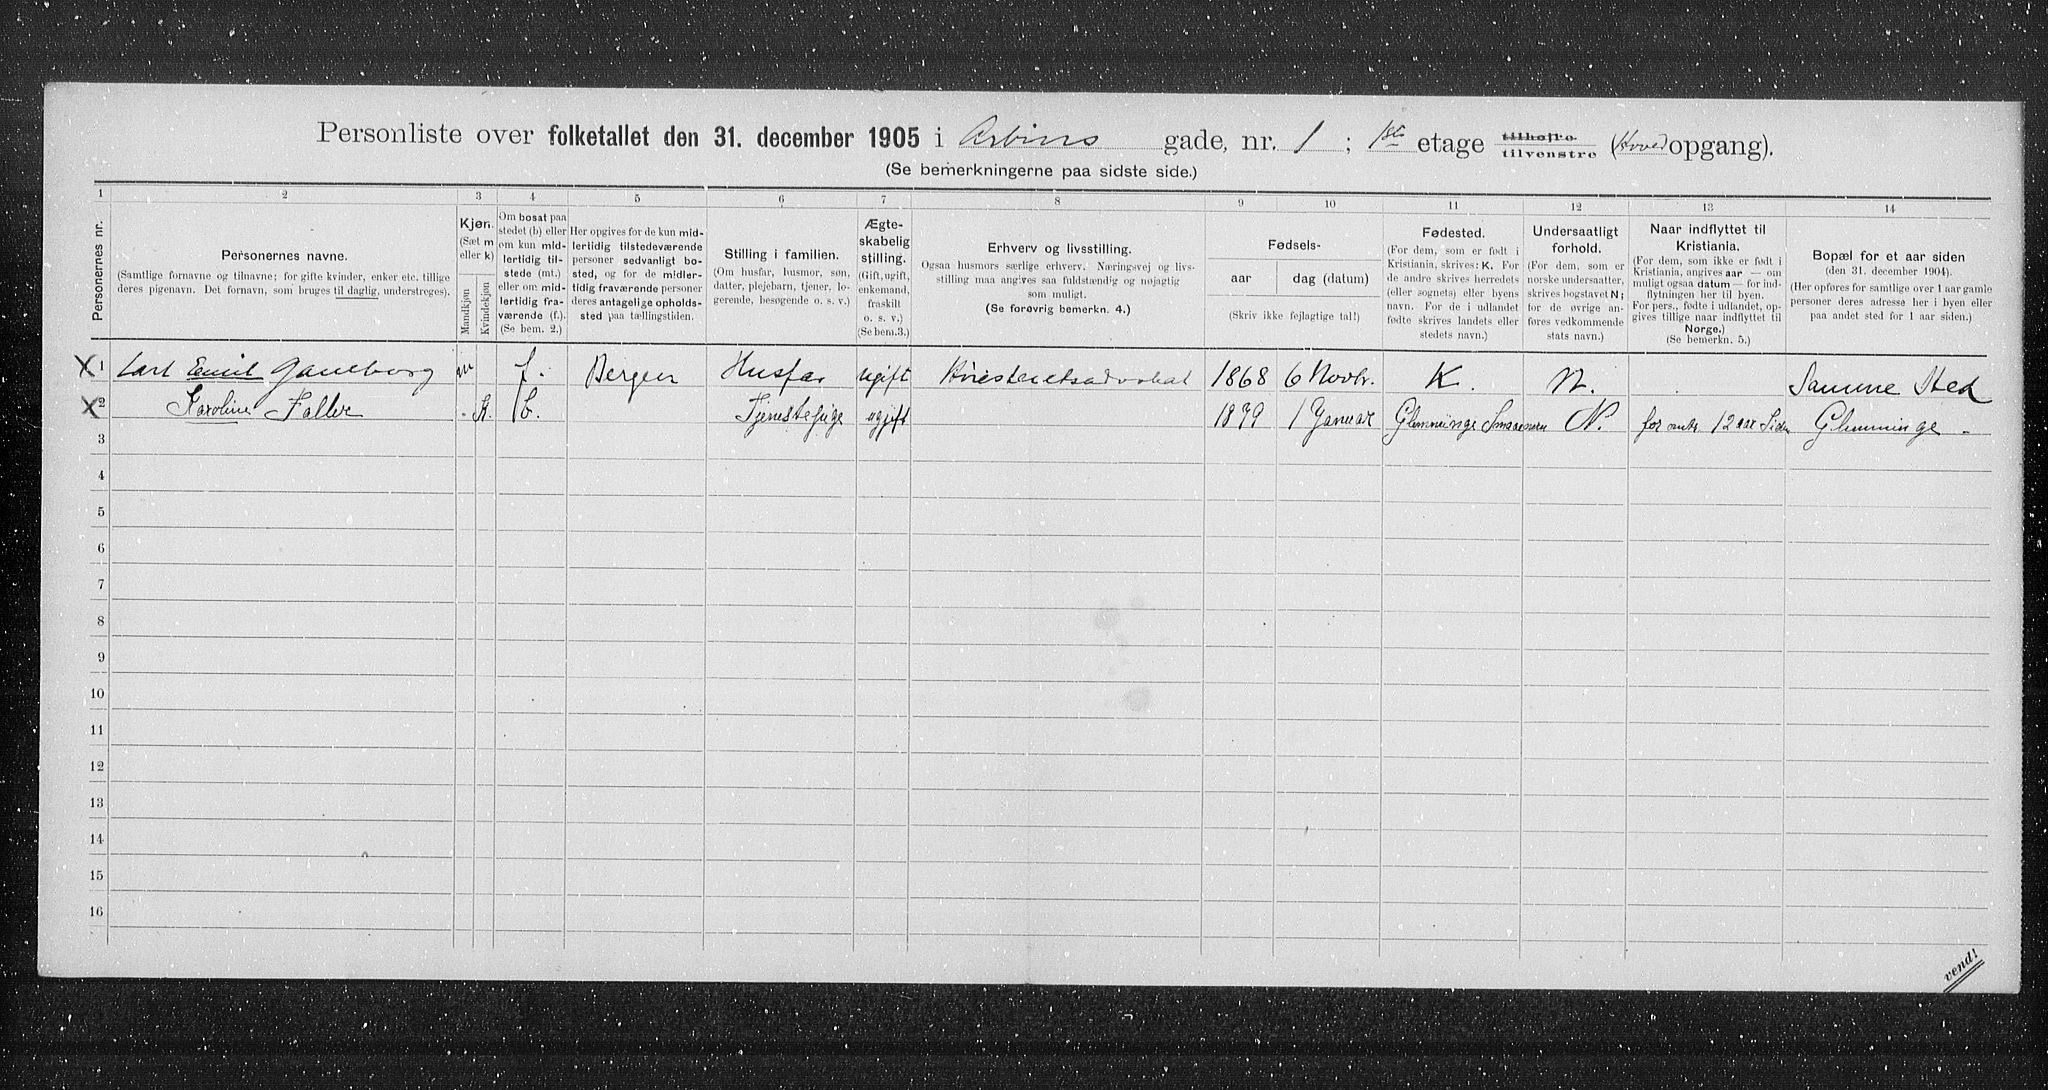 Personliste over folketallet den 31. december 1905 i Arbins gade, nr. 1 ; 1ste etage tilhøjre tilvenstre (Hovedopgang).
(Se bemerkningerne paa sidste side.)
1 2 3 4 5 6 7 8 9 10 11 12 13 14
Personernes nr.
Personernes navne.
(Samtlige fornavne og tilnavne; for gifte kvinder, enker etc. tillige
deres pigenavn. Det fornavn, som bruges til daglig, understreges).
Kjøn.
(Sæt m
eller k)
Mandkjøn
Kvindekjøn
Om bosat paa
stedet (b) eller
om kun mid-
lertidig til-
stede (mt.)
eller om mid-
lertidig fra-
værende (f.).
(Se bem. 2.)
Her opgives for de kun mid-
lertidig tilstedeværende
personer sedvanligt bo-
sted, og for de midler-
tidig fraværende personer
deres antagelige opholds-
sted paa tællingstiden.
Stilling i familien.
(Om husfar, husmor, søn,
datter, plejebarn, tjener, lo-
gerende, besøgende o. s. v.)
Ægte-
skabelig
stilling.
(Gift, ugift,
enkemand,
fraskilt
o. s. v.)
(Se bem.3.)
Erhverv og livsstilling.
Ogsaa husmors særlige erhverv. Næringsvej og livs-
stilling maa angives saa fuldstændig og nøjagtig
som muligt.
(Se forøvrig bemerkn. 4.)
Fødsels-
aar
dag (datum)
(Skriv ikke fejlagtige tal!)
Fødested.
(For dem, som er født i
Kristiania, skrives: K. For
de andre skrives herredets
(eller sognets) eller byens
navn. For de i udlandet
fødte skrives landets eller
stedets navn.)
Undersaatligt
forhold.
(For dem, som er
norske undersaatter,
skrives bogstavet N;
for de øvrige an-
føres vedkommende
stats navn.)
Naar indflyttet til
Kristiania.
(For dem, som ikke er født i
Kristiania, angives aar — om
muligt ogsaa datum — for ind-
flytningen her til byen.
For pers., fødte i udlandet, op-
gives tillige naar indflyttet til
Norge.)
(Se bemerkn. 5.)
Bopæl for et aar siden
(den 31. december 1904).
(Her opføres for samtlige over 1 aar gamle
personer deres adresse her i byen eller
paa andet sted for 1 aar siden.)
X 1 Carl Emil m f. Bergen Husfar ugift Høiesteretsadvokat 1868 6 Novbr. K. N. Samme Sted
X 2 Karoline K. b. Tjenestepige ugift 1879 1 Januar Glemminge Smaalenene N. for omtr. 12 aar Siden Glemminge
3
4
5
6
7
8
9
10
11
12
13
14
15
16
vend!